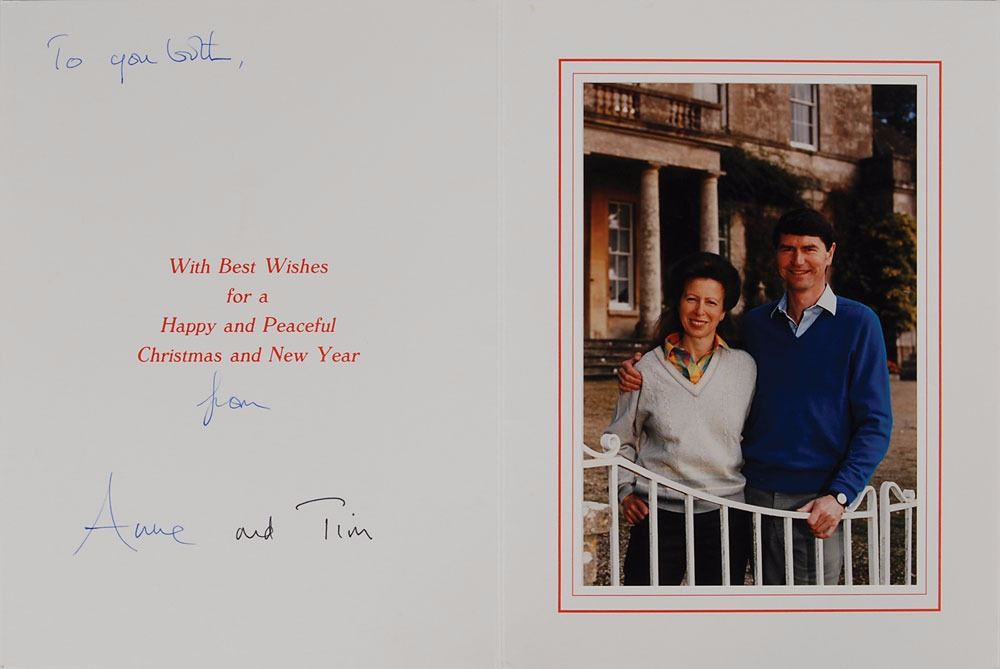 To you both,
With Best Wishes
for a
Happy and Peaceful
Christmas and New Year
from
Anne and Tim